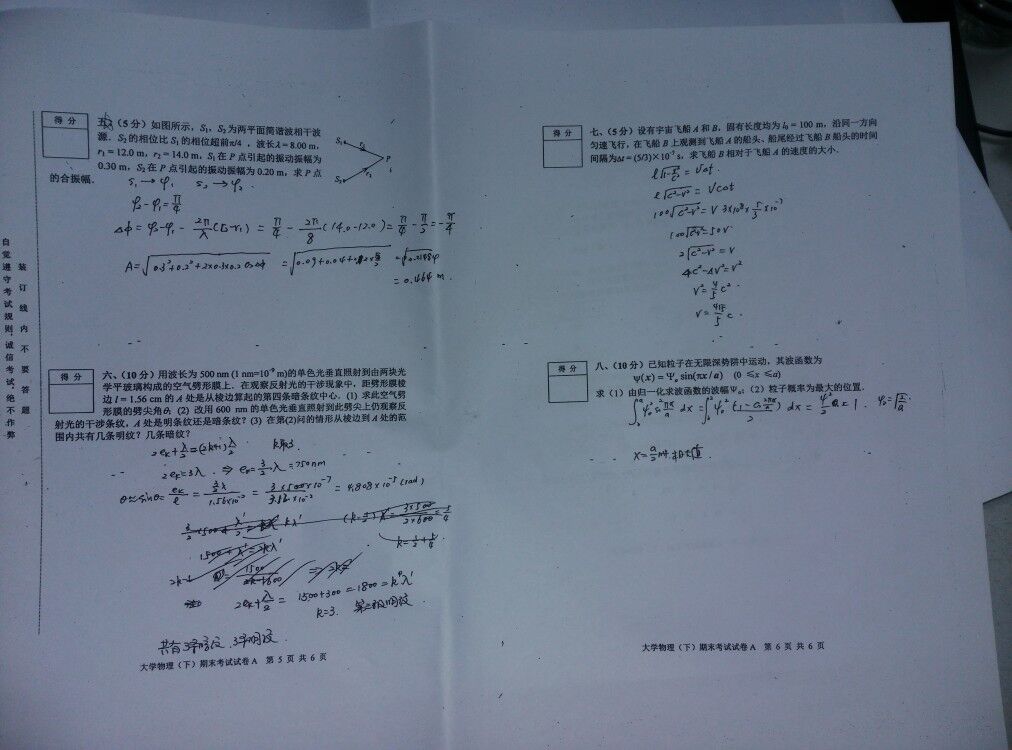 得 分
五、(5 分) 如图所示，S₁，S₂ 为两平面简谐波相干波
源．S₂ 的相位比 S₁ 的相位超前π/4 ，波长 λ = 8.00 m，
r₁ = 12.0 m，r₂ = 14.0 m，S₁ 在 P 点引起的振动振幅为
0.30 m，S₂ 在 P 点引起的振动振幅为 0.20 m，求 P 点
的合振幅．
S₁
r₁
P
r₂
S₂
S₁ → φ₁ S₂ → φ₂ .
φ₂-φ₁=π/4
Δφ = φ₂-φ₁ - 2π/λ (r₂-r₁) = π/4 - 2π/8 (14.0-12.0) = π/4 - π/2 = -π/4
A = √(0.3²+0.2²+2×0.3×0.2 cosΔφ)
= 0.464 m .
自觉遵守考试规则，诚信考试，绝不作弊
装订线内不要答题
得 分
六、(10 分) 用波长为 500 nm (1 nm=10⁻⁹ m)的单色光垂直照射到由两块光
学平玻璃构成的空气劈形膜上．在观察反射光的干涉现象中，距劈形膜棱
边 l = 1.56 cm 的 A 处是从棱边算起的第四条暗条纹中心．(1) 求此空气劈
形膜的劈尖角θ; (2) 改用 600 nm 的单色光垂直照射到此劈尖上仍观察反
射光的干涉条纹，A 处是明条纹还是暗条纹？(3) 在第(2)问的情形从棱边到 A 处的范
围内共有几条明纹？几条暗纹？
2eₖ+λ/2=(2k+1)λ/2 k取3
2eₖ=3λ . ⇒ eₖ=3/2 λ=750nm
θ≈sinθ= eₖ/l = (3/2 λ)/(1.56×10⁻²) = 4.808×10⁻⁵ (rad)
2eₖ+λ/2 = 1500+300 = 1800 = kλ'
k=3. 第三级明纹
共有3条暗纹，3条明纹．
大学物理（下）期末考试试卷 A 第 5 页 共 6 页
得 分
七、(5 分) 设有宇宙飞船 A 和 B，固有长度均为 l₀ = 100 m，沿同一方向
匀速飞行，在飞船 B 上观测到飞船 A 的船头、船尾经过飞船 B 船头的时间
间隔为Δt = (5/3)×10⁻⁷ s，求飞船 B 相对于飞船 A 的速度的大小．
l√(1-v²/c²) = vΔt.
l√(c²-v²) = vcΔt
100√(c²-v²) = v 3×10⁸×5/3×10⁻⁷
100√(c²-v²)=50v
2√(c²-v²)=v
4c²-4v²=v²
v²=4/5 c² .
v=
得 分
八、(10 分) 已知粒子在无限深势阱中运动，其波函数为
ψ(x) = Ψₐ sin(πx / a) (0 ≤ x ≤ a)
求 (1) 由归一化求波函数的波幅 Ψₐ; (2) 粒子概率为最大的位置．
x=a/2时
大学物理（下）期末考试试卷 A 第 6 页 共 6 页